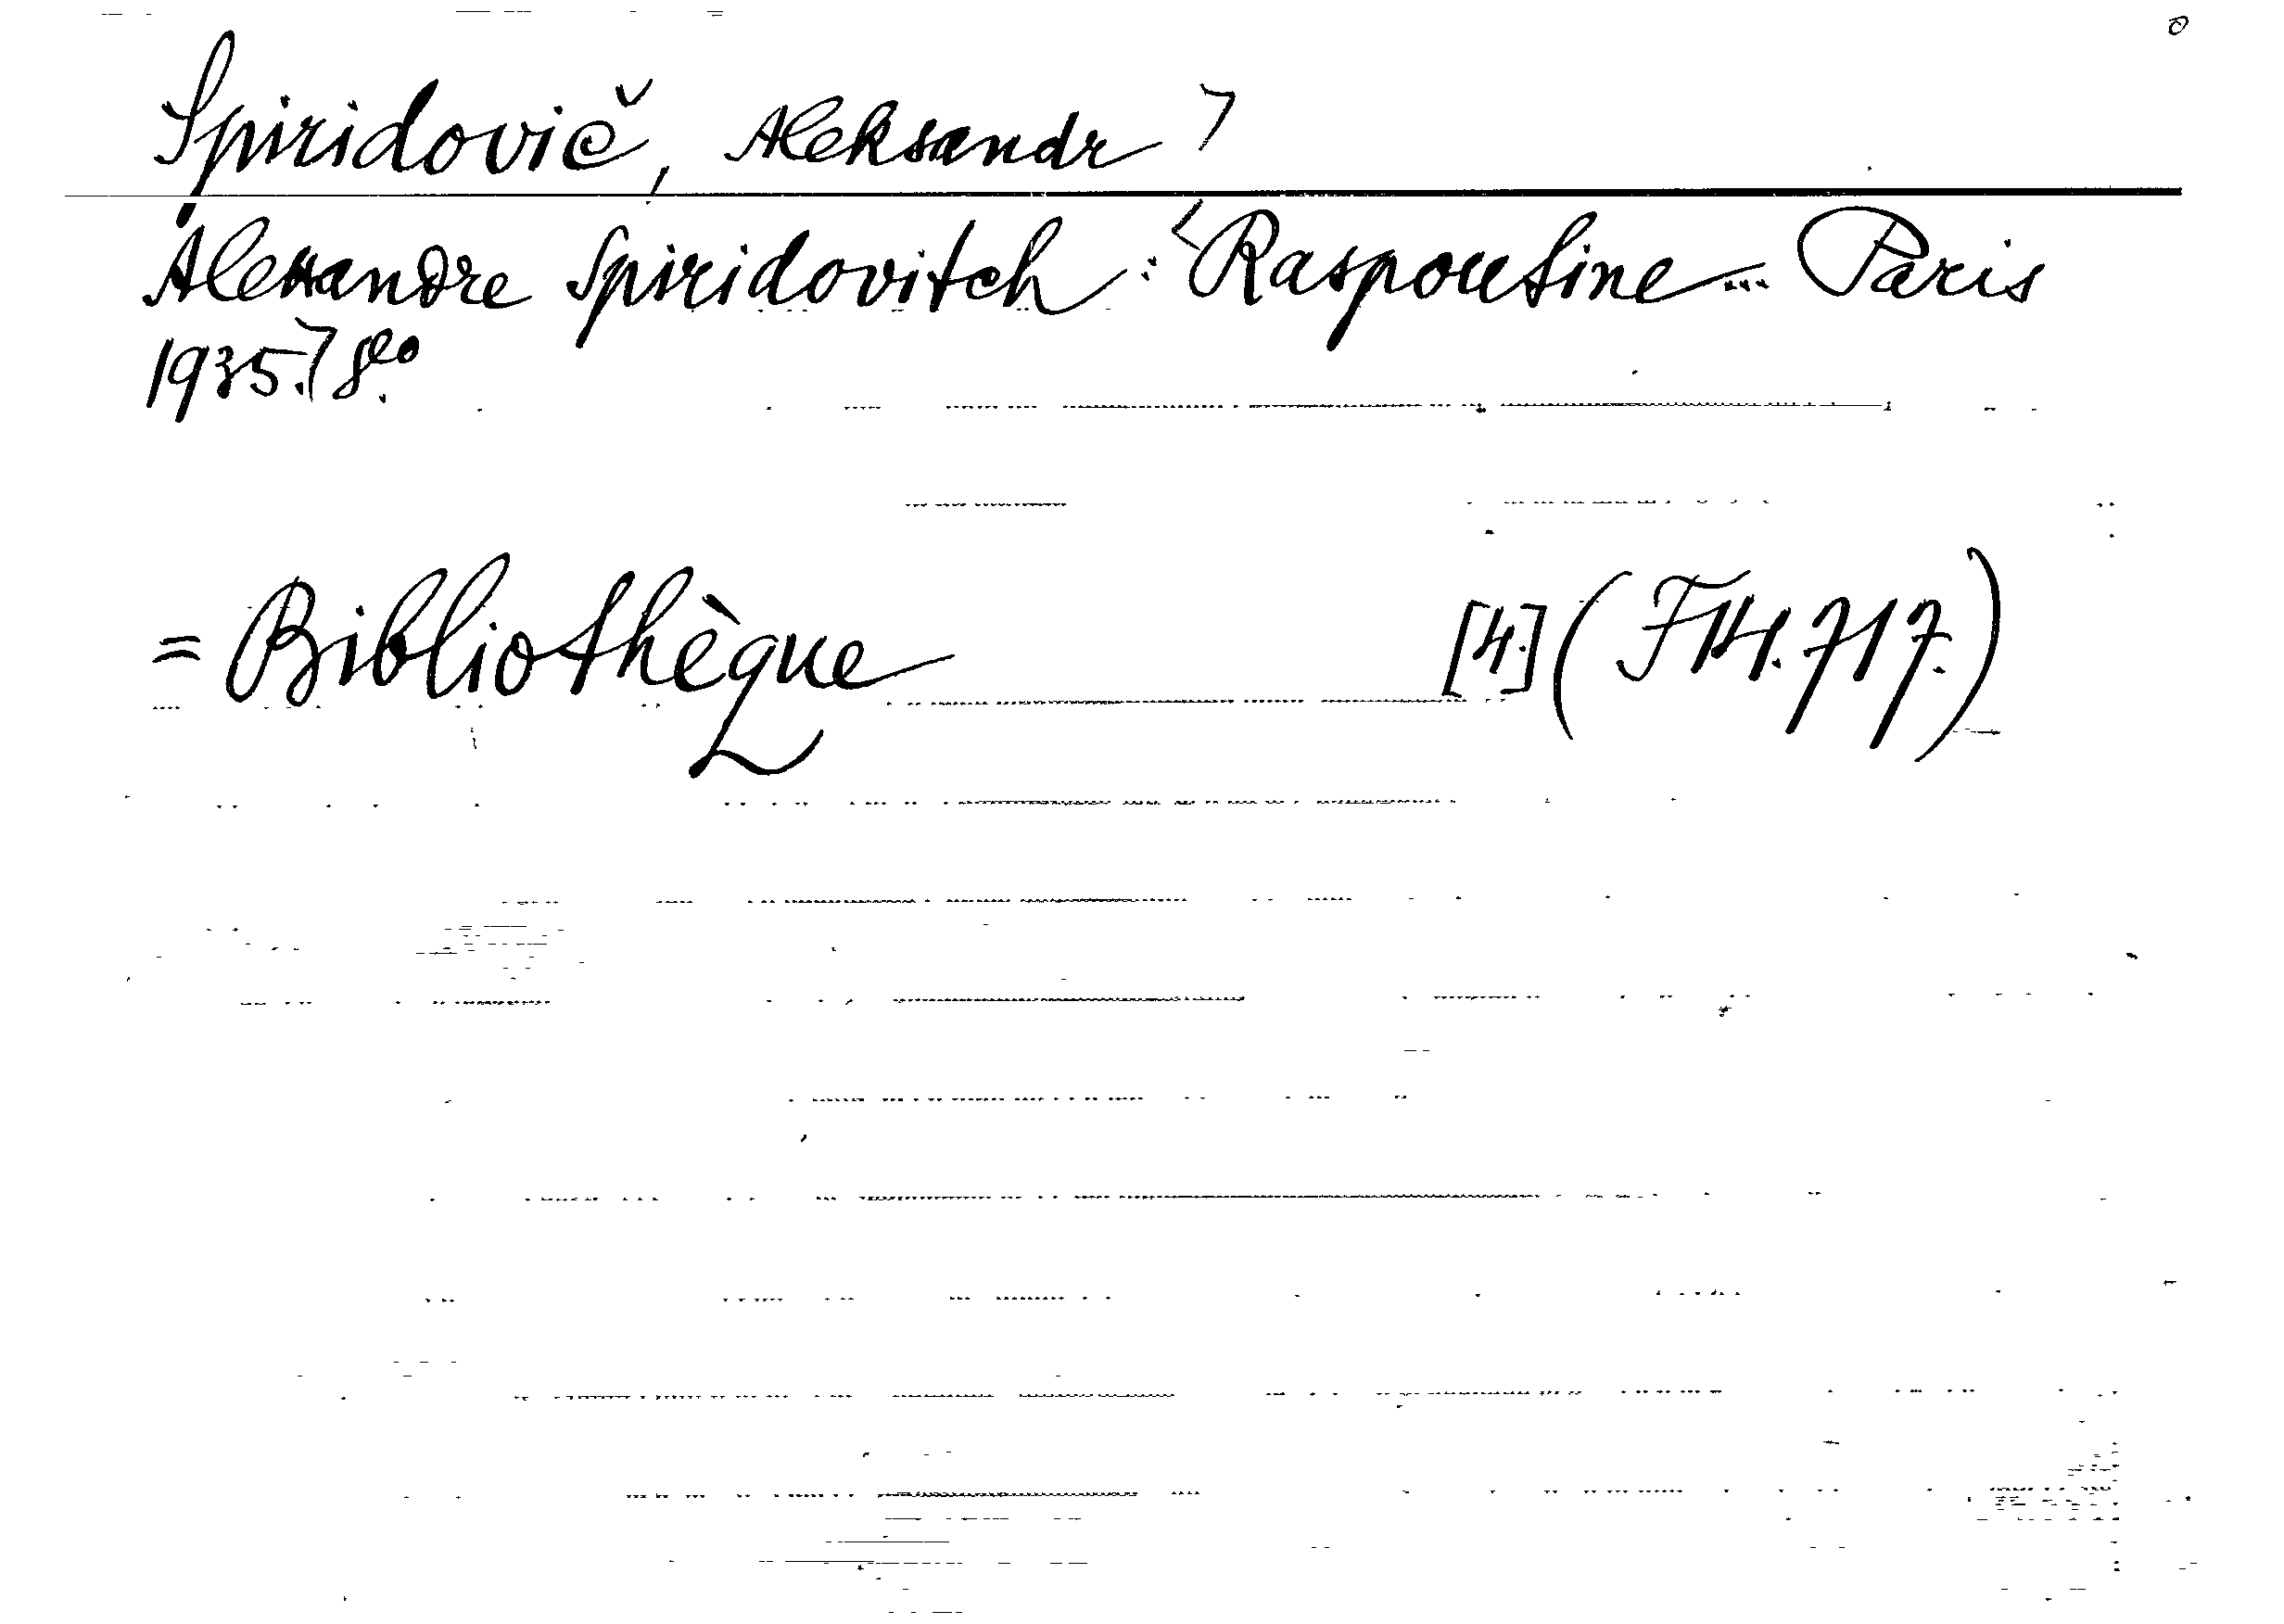 Spiridovič, Aleksandr ⌉
Alexandre Spiridovitch: ⟨Raspoutine... Paris
1935.⌉ 8⁰.
= Bibliothèque [4.] (F14.717.)